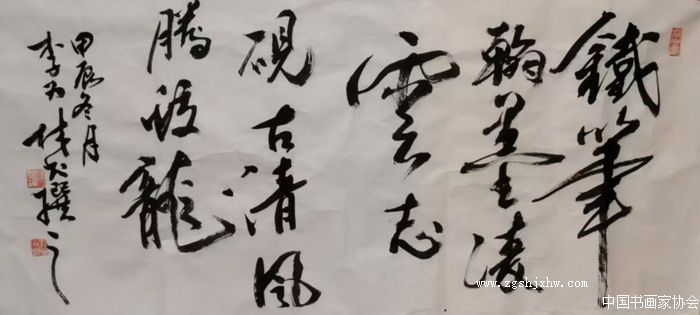 鐵筆
翰墨凌
雲志
硯古清風
騰蛟龍
甲辰冬月
李 撰之
www.zgshjxhw.com
中国书画家协会